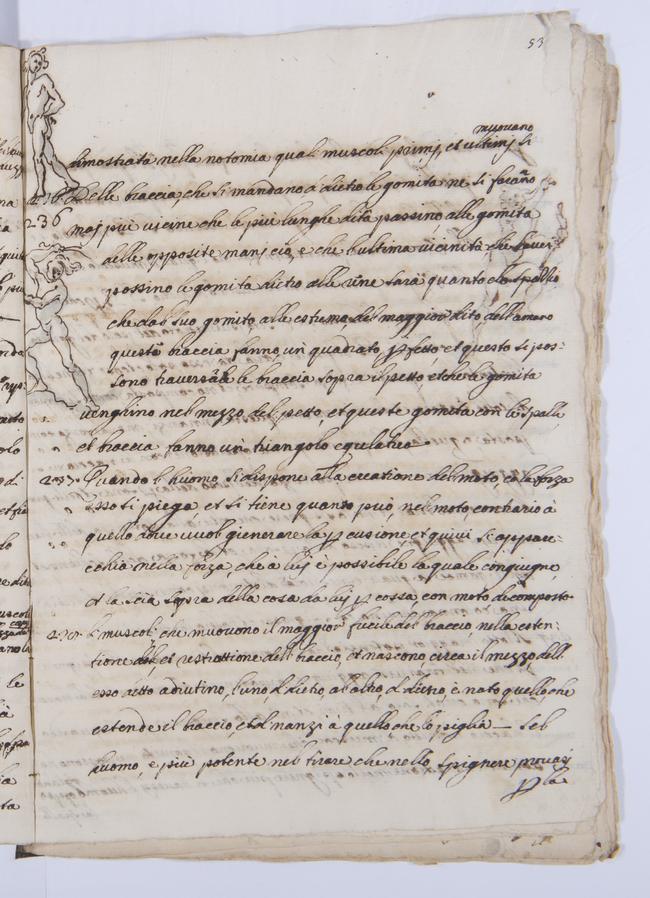 53
muovano
dimostrata nella notomia quali muscoli primj, et ultimj si
236 Delle braccia, che si mandano à dietro le gomita ne si faranno
236 maj piu vicine che le piu lunghe dita passino alle gomita
delle opposite manj cio, e che l'ultima vicinità, che haver
possino le gomita dietro alle rene sarà quanto lo spatio
che dal suo gomito alle estremo, del maggior dito, dell'amano
questa braccia fanno un quadrato pfetto et questo si pos-
sono traversare le braccia sopra il petto et che le gomita
venghino nel mezzo del petto, et queste gomita con le spalle
et braccia fanno un triangolo equilatero
237. Quando l'huomo si dispone alla creatione del moto, cō la forza
esso si piega, et si tiene quanto può, nel moto contrario à
quello dove vuol gienerare la pcusione et quivi s'appare-
cchia nella forza, che à luj è possibile la quale congiugne,
et lascia sopra della cosa da luj pcossa, con moto decomposto
li muscoli che muovono il maggior fucile del braccio, nella esten-
tione et restrattione del braccio, et nascono circa il mezzo, dell
esso detto adiutino, l'uno, dietro al altro, di dietro, è nato quello, che
estende il braccio, et d'inanzi à quello che lo piglia — Se l'
huomo, e piu potente nel tirare che nello spignere provasi
pla